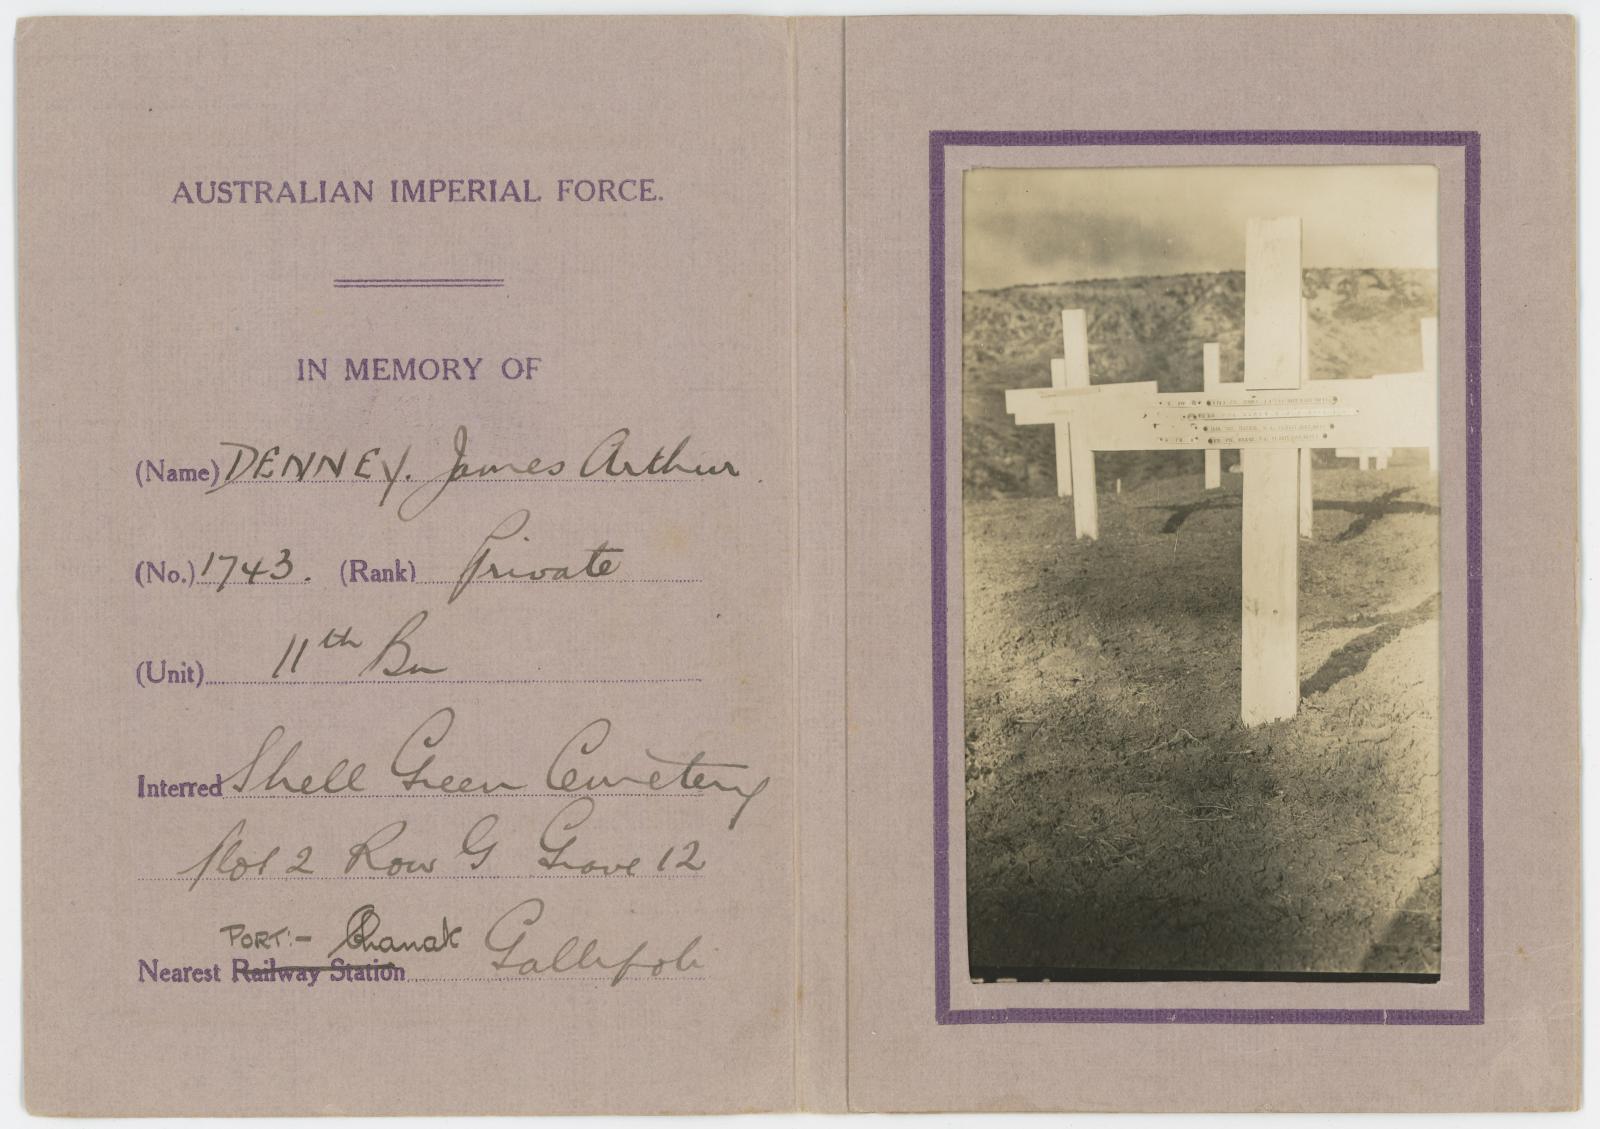 AUSTRALIAN IMPERIAL FORCE.
IN MEMORY OF
(Name) DENNEY. James Arthur
(No.) 1743. (Rank) Private
(Unit) 11th Bn
Interred Shell Green Cemetery
Plot 2 Row G Grave 12
PORT:- Chanak
Nearest Railway Station Gallipoli